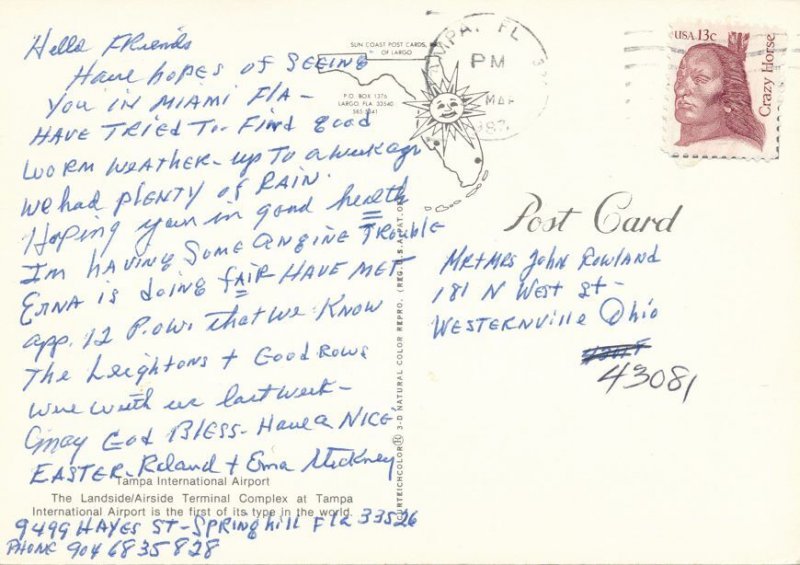 Hello Friends
Have hopes of SEEING
You in MIAMI FLA -
HAVE TRIED To Find good
WORM WEATHER - up To a week ago
We had PLENTY of RAIN.
Hoping your in good health
I'm HAVING Some angine TROUBLE
ERNA is doing FAIR HAVE MET
app. 12 P.OW. that we KNOW
The Leightons + Good Rows
were with us last week -
May God BLESS - Have a NICE
EASTER - Roland + Erna Stickney
Tampa International Airport
The Landside/Airside Terminal Complex at Tampa
International Airport is the first of its type in the world.
9499 HAYES ST - SPRING hill FLA 33526
PHONE 904 6835828
SUN COAST POST CARDS,
OF LARGO
P.O. BOX 1376
LARGO, FLA. 33540
TAMPA, FL
PM
MAR
USA 13c
Crazy Horse
Post Card
MR+MRS John Rowland
181 N West St -
WESTERNVille Ohio
43081
CURTEICHCOLOR® 3-D NATURAL COLOR REPRO. (REG. U.S.A. PAT. OFF.